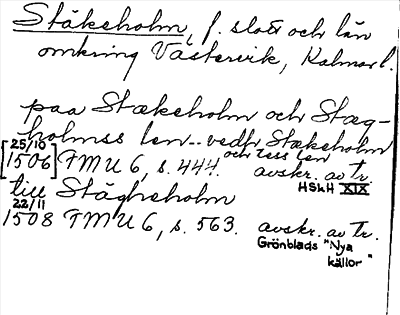 Stäkeholm, f. slott och län
omkring Västervik, Kalmar l.
paa Stækeholm och Stæg-
holmss len .. vedh Stækeholm
och tess len
25/10
[1506] FMU 6, s. 444. avskr. av tr.
HSkH XIX
till Stägheholm
22/11
1508 FMU 6, s. 563. avskr. av tr.
Grönblads "Nya
källor"